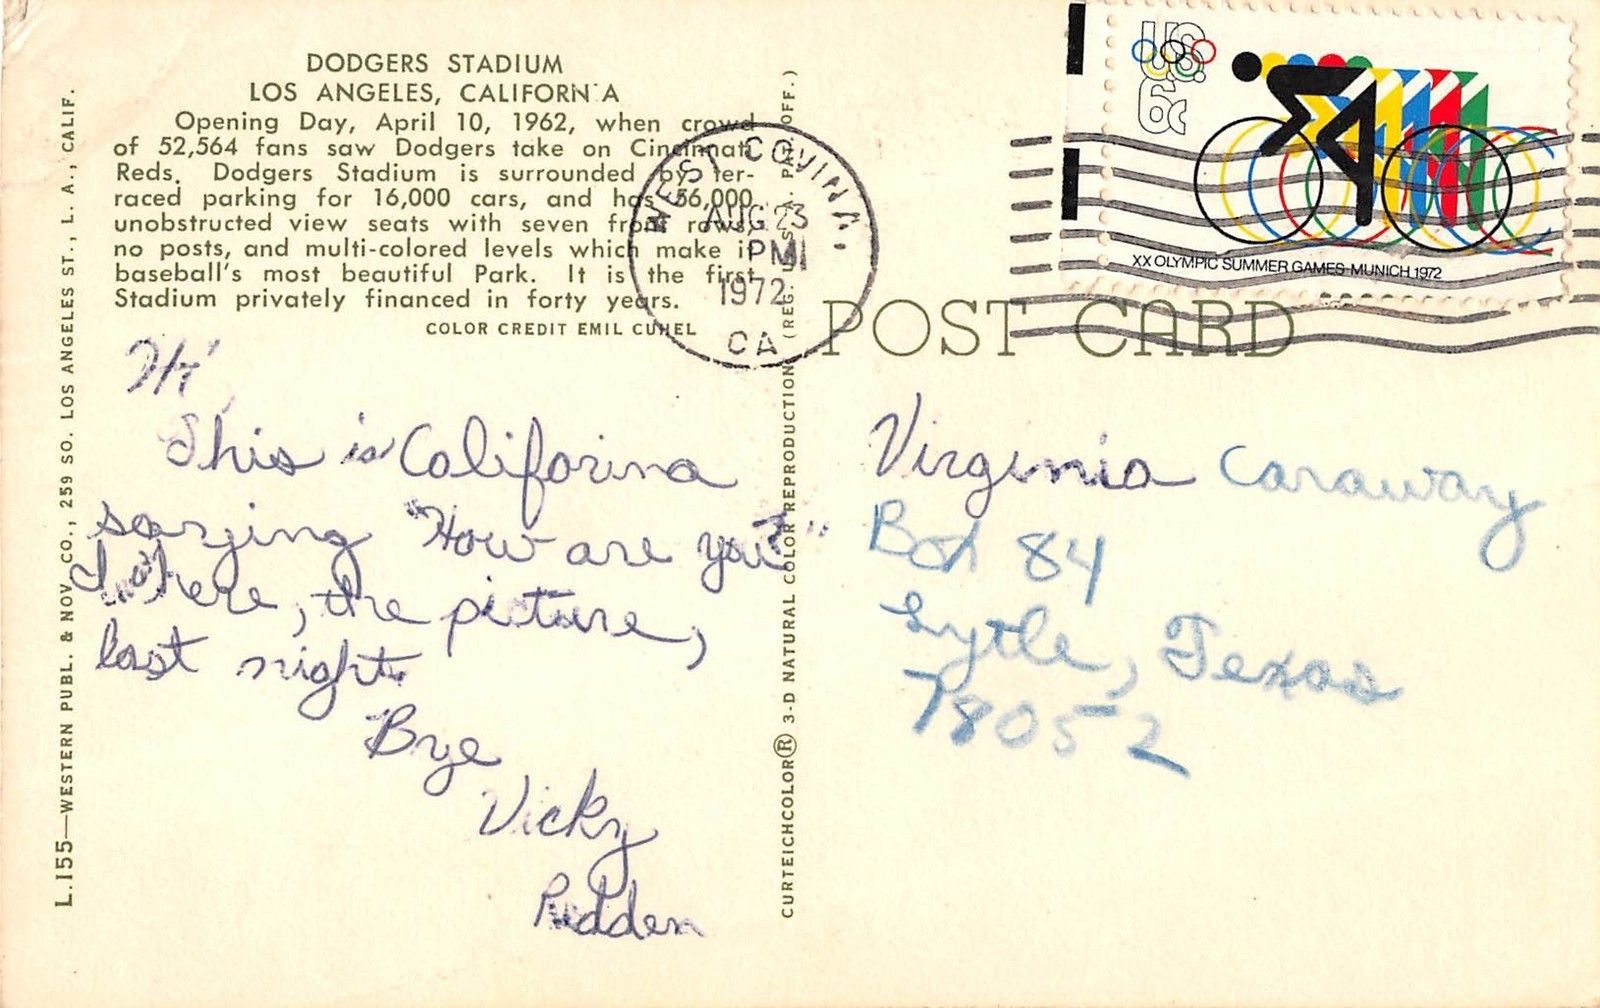 DODGERS STADIUM
LOS ANGELES, CALIFORN A
Opening Day, April 10, 1962, when crowd
of 52,564 fans saw Dodgers take on Cincinnati
Reds. Dodgers Stadium is surrounded by ter-
raced parking for 16,000 cars, and has 56,000
unobstructed view seats with seven front rows,
no posts, and multi-colored levels which make it
baseball's most beautiful Park. It is the first
Stadium privately financed in forty years.
COLOR CREDIT EMIL CUHEL
L.155—WESTERN PUBL. & NOV. CO., 259 SO. LOS ANGELES ST., L. A., CALIF.
Hi,
This is California
saying "How are you?"
I was here, the picture,
last night.
Bye
Vicky
Redden
CURTEICHCOLOR® 3-D NATURAL COLOR REPRODUCTION (REG. U.S.A. PAT. OFF.)
WEST COVINA,
AUG 23
PM
1972
CA
U.S.
6c
XX OLYMPIC SUMMER GAMES MUNICH 1972
POST CARD
Virginia Caraway
Box 84
Lytle, Texas
78052